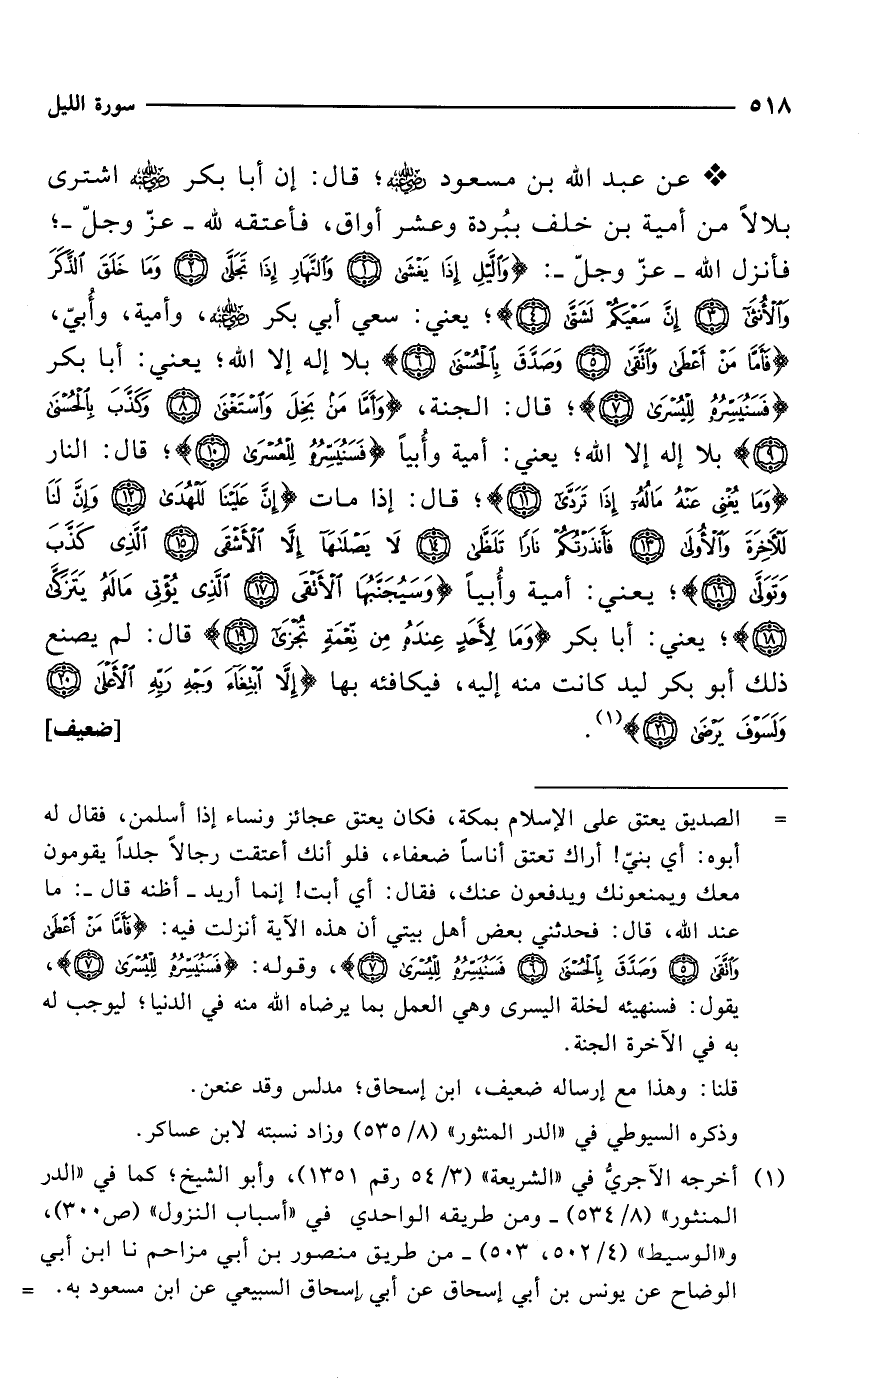 ٥١٨ سورة الليل
❖ عن عبد الله بن مسعود رضي الله عنه؛ قال: إن أبا بكر رضي الله عنه اشترى
بلالاً من أمية بن خلف ببُردة وعشر أواق، فأعتقه لله ـ عزّ وجلّ ـ؛
فأنزل الله ـ عزّ وجلّ ـ: ﴿وَٱلَّيْلِ إِذَا يَغْشَىٰ ۝١ وَٱلنَّهَارِ إِذَا تَجَلَّىٰ ۝٢ وَمَا خَلَقَ ٱلذَّكَرَ
وَٱلْأُنثَىٰٓ ۝٣ إِنَّ سَعْيَكُمْ لَشَتَّىٰ ۝٤﴾؛ يعني: سعي أبي بكر رضي الله عنه، وأمية، وأُبيّ،
﴿فَأَمَّا مَنْ أَعْطَىٰ وَٱتَّقَىٰ ۝٥ وَصَدَّقَ بِٱلْحُسْنَىٰ ۝٦﴾ بلا إله إلا الله؛ يعني: أبا بكر
﴿فَسَنُيَسِّرُهُۥ لِلْيُسْرَىٰ ۝٧﴾؛ قال: الجنة، ﴿وَأَمَّا مَنۢ بَخِلَ وَٱسْتَغْنَىٰ ۝٨ وَكَذَّبَ بِٱلْحُسْنَىٰ
۝٩﴾ بلا إله إلا الله؛ يعني: أمية وأُبياً ﴿فَسَنُيَسِّرُهُۥ لِلْعُسْرَىٰ ۝١٠﴾؛ قال: النار
﴿وَمَا يُغْنِى عَنْهُ مَالُهُۥٓ إِذَا تَرَدَّىٰٓ ۝١١﴾؛ قال: إذا مات ﴿إِنَّ عَلَيْنَا لَلْهُدَىٰ ۝١٢ وَإِنَّ لَنَا
لَلْـَٔاخِرَةَ وَٱلْأُولَىٰ ۝١٣ فَأَنذَرْتُكُمْ نَارًا تَلَظَّىٰ ۝١٤ لَا يَصْلَىٰهَآ إِلَّا ٱلْأَشْقَى ۝١٥ ٱلَّذِى كَذَّبَ
وَتَوَلَّىٰ ۝١٦﴾؛ يعني: أمية وأُبياً ﴿وَسَيُجَنَّبُهَا ٱلْأَتْقَى ۝١٧ ٱلَّذِى يُؤْتِى مَالَهُۥ يَتَزَكَّىٰ
۝١٨﴾؛ يعني: أبا بكر ﴿وَمَا لِأَحَدٍ عِندَهُۥ مِن نِّعْمَةٍ تُجْزَىٰٓ ۝١٩﴾ قال: لم يصنع
ذلك أبو بكر ليد كانت منه إليه، فيكافئه بها ﴿إِلَّا ٱبْتِغَآءَ وَجْهِ رَبِّهِ ٱلْأَعْلَىٰ ۝٢٠
وَلَسَوْفَ يَرْضَىٰ ۝٢١﴾(١). [ضعيف]
= الصديق يعتق على الإسلام بمكة، فكان يعتق عجائز ونساء إذا أسلمن، فقال له
أبوه: أي بنيّ! أراك تعتق أناساً ضعفاء، فلو أنك أعتقت رجالاً جلداً يقومون
معك ويمنعونك ويدفعون عنك، فقال: أي أبت! إنما أريد ـ أظنه قال ـ: ما
عند الله، قال: فحدثني بعض أهل بيتي أن هذه الآية أنزلت فيه: ﴿فَأَمَّا مَنْ أَعْطَىٰ
وَٱتَّقَىٰ ۝٥ وَصَدَّقَ بِٱلْحُسْنَىٰ ۝٦ فَسَنُيَسِّرُهُۥ لِلْيُسْرَىٰ ۝٧﴾، وقوله: ﴿فَسَنُيَسِّرُهُۥ لِلْيُسْرَىٰ ۝٧﴾،
يقول: فسنهيئه لخلة اليسرى وهي العمل بما يرضاه الله منه في الدنيا؛ ليوجب له
به في الآخرة الجنة.
قلنا: وهذا مع إرساله ضعيف، ابن إسحاق؛ مدلس وقد عنعن.
وذكره السيوطي في «الدر المنثور» (٨/ ٥٣٥) وزاد نسبته لابن عساكر.
(١) أخرجه الآجريُّ في «الشريعة» (٣/ ٥٤ رقم ١٣٥١)، وأبو الشيخ؛ كما في «الدر
المنثور» (٨/ ٥٣٤) ـ ومن طريقه الواحدي في «أسباب النزول» (ص٣٠٠)،
و«الوسيط» (٤/ ٥٠٢، ٥٠٣) ـ من طريق منصور بن أبي مزاحم نا ابن أبي
الوضاح عن يونس بن أبي إسحاق عن أبي إسحاق السبيعي عن ابن مسعود به. =